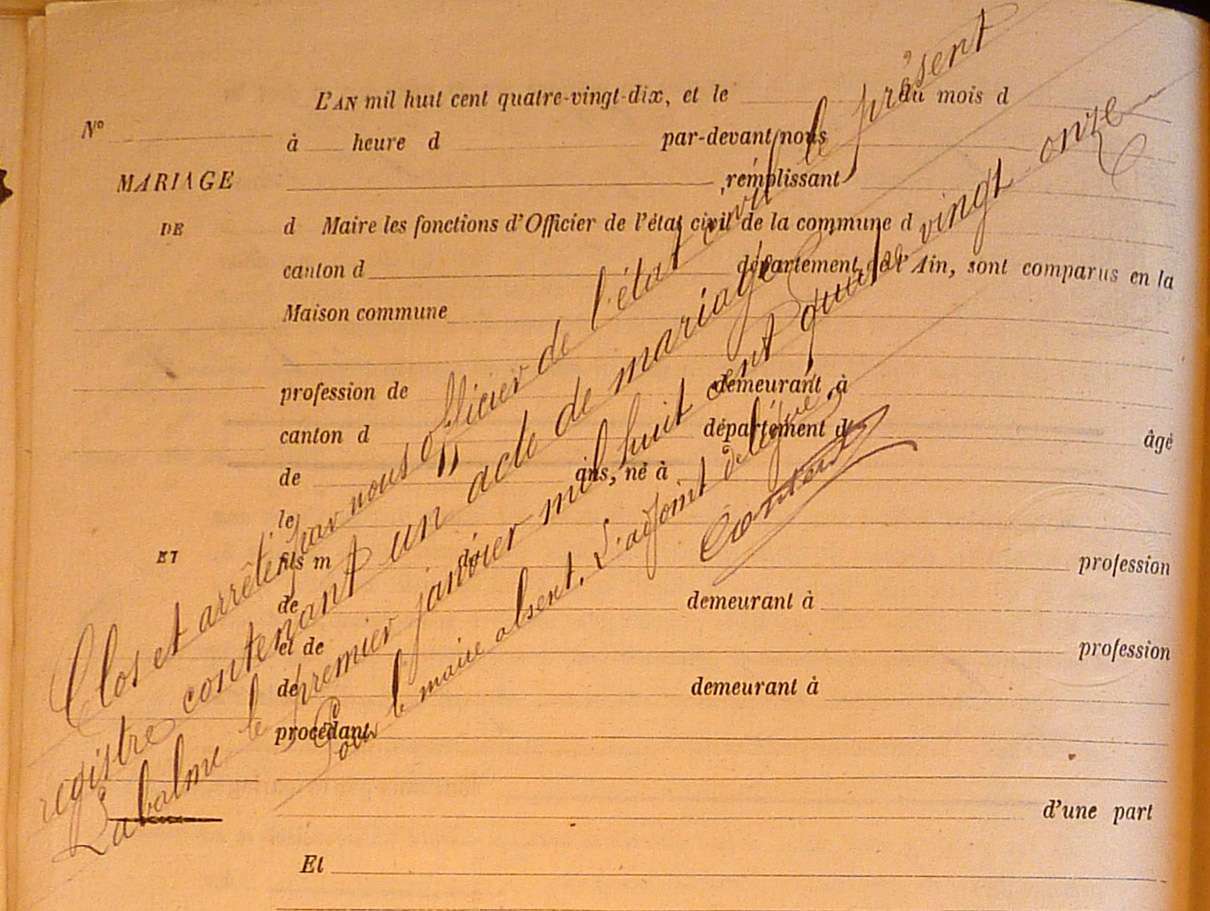 L'AN mil huit cent quatre-vingt-dix, et le du mois d
N°
à heure d par-devant nous
MARIAGE
remplissant
DE
d Maire les fonctions d'Officier de l'état civil de la commune d
canton d département de l'Ain, sont comparus en la
Maison commune
profession de demeurant à
canton d département d âgé
de ans, né à
le
ET
fils m de profession
de demeurant à
et de profession
de demeurant à
procédant
d'une part
Et
Clos et arrêté par nous officier de l'état civil le présent
registre contenant un acte de mariage
Labalme le premier janvier mil huit cent quatre vingt onze
Pour le maire absent. L'adjoint délégué,